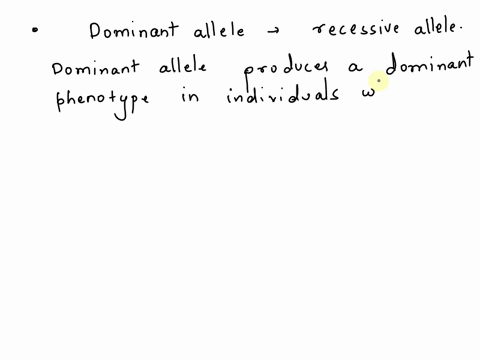 • Dominant allele → recessive allele.
Dominant allele produces a dominant
phenotype in individuals w